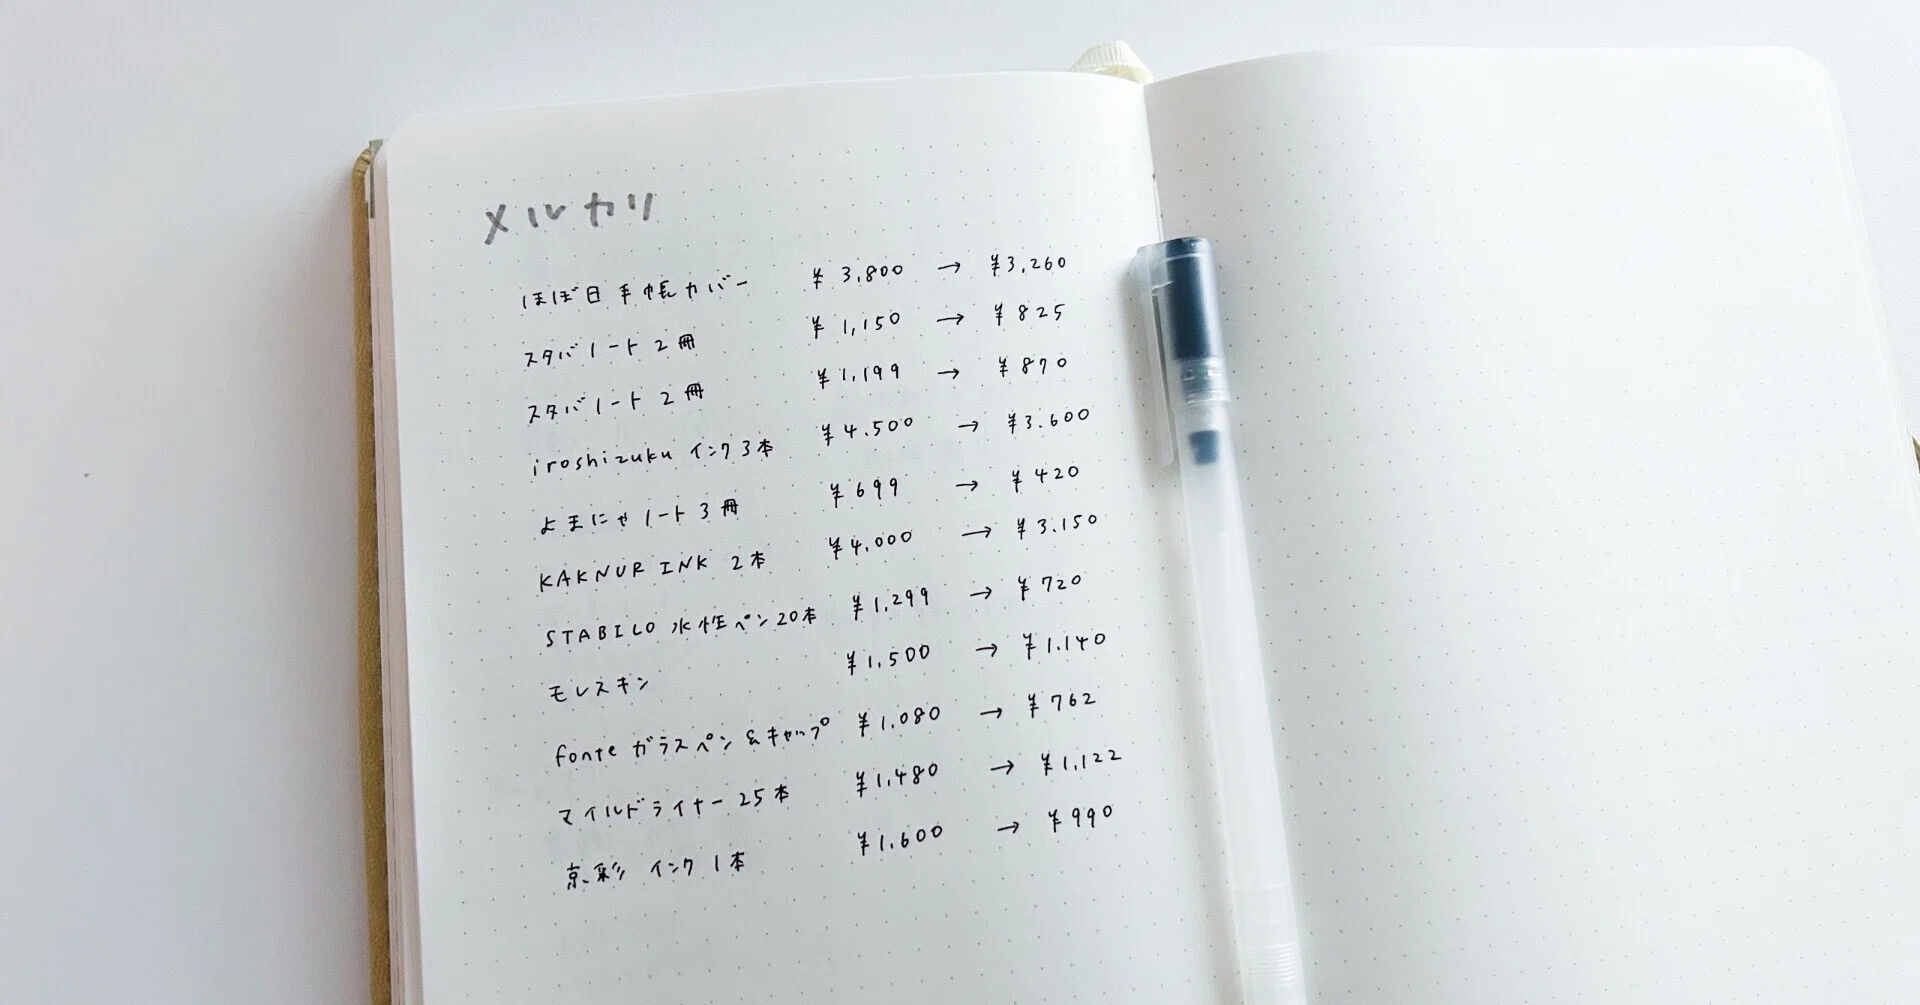 メルカリ
ほぼ日手帳カバー ¥3,800 → ¥3,260
スタバノート2冊 ¥1,150 → ¥825
スタバノート2冊 ¥1,199 → ¥870
iroshizuku インク3本 ¥4,500 → ¥3,600
よまにゃノート3冊 ¥699 → ¥420
KAKNUR INK 2本 ¥4,000 → ¥3,150
STABILO 水性ペン20本 ¥1,299 → ¥720
モレスキン ¥1,500 → ¥1,140
fonte ガラスペン&キャップ ¥1,080 → ¥762
マイルドライナー25本 ¥1,480 → ¥1,122
京彩 インク1本 ¥1,600 → ¥990